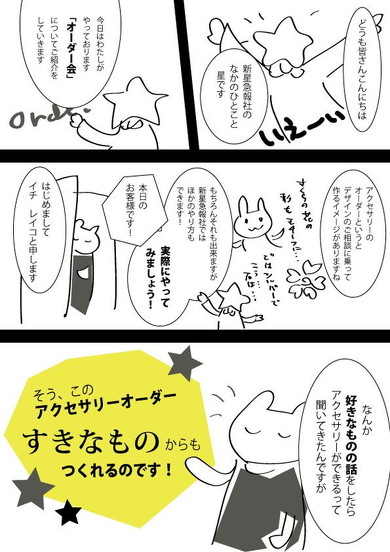 どうも皆さんこんにちは
新星急報社の
なかのひとこと
星です
いえーい
今日はわたしが
やっております
「オーダー会」
についてご紹介を
していきます
order
アクセサリーの
オーダーというと
デザインのご相談に乗って
作るイメージがありますね
さくらの花の
もちろんそれも出来ますが
新星急報社では
ほかのやり方も
できます！
実際にやって
みましょう！
本日の
お客様です！
はじめまして
イチ レイコと申します
なんか
好きなものの話をしたら
アクセサリーができるって
聞いてきたんですが
そう、この
アクセサリーオーダー
すきなものからも
つくれるのです！